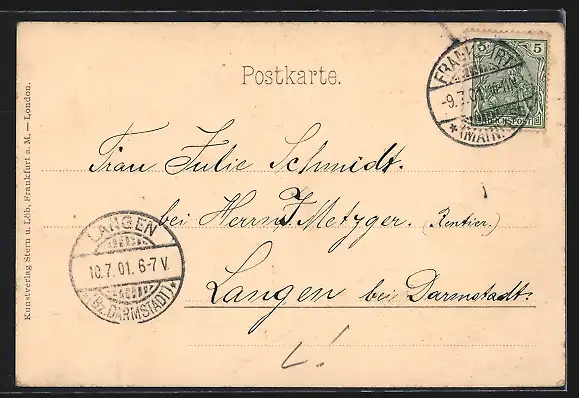 Postkarte.
5 5
REICHSPOST
FRANKFURT
-9.7.01. 10-11 N.
* (MAIN)
Frau Julie Schmidt.
bei Herrn J Metzger. (Rentier.)
Langen bei Darmstadt.
LANGEN
10.7.01. 6-7 V.
*(Bz. DARMSTADT)*
Kunstverlag Stern u. Löb, Frankfurt a. M. — London.